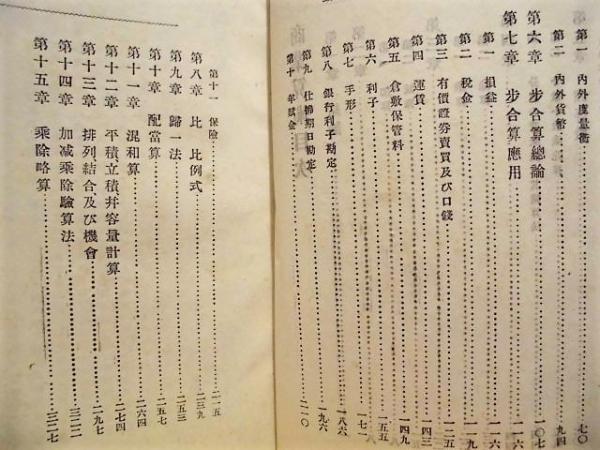 第一 內外度量衡 七〇
第二 內外貨幣 九四
第六章 步合算總論 一〇七
第七章 步合算應用 一一六
第一 損益 一一六
第二 稅金
第三 有價證券賣買及び口錢 一二五
第四 運賃 一四三
第五 倉敷保管料 一四九
第六 利子 一五五
第七 手形 一七一
第八 銀行利子勘定 一八六
第九 仕拂期日勘定 一九六
第十 年賦金 二一〇
第十一 保險 二一五
第八章 比 比例式 二三九
第九章 歸一法 二五三
第十章 配當算 二五七
第十一章 混和算 二六四
第十二章 平積立積幷容量計算 二七四
第十三章 排列結合及び機會 二九七
第十四章 加減乘除驗算法 三二二
第十五章 乘除略算 三二七